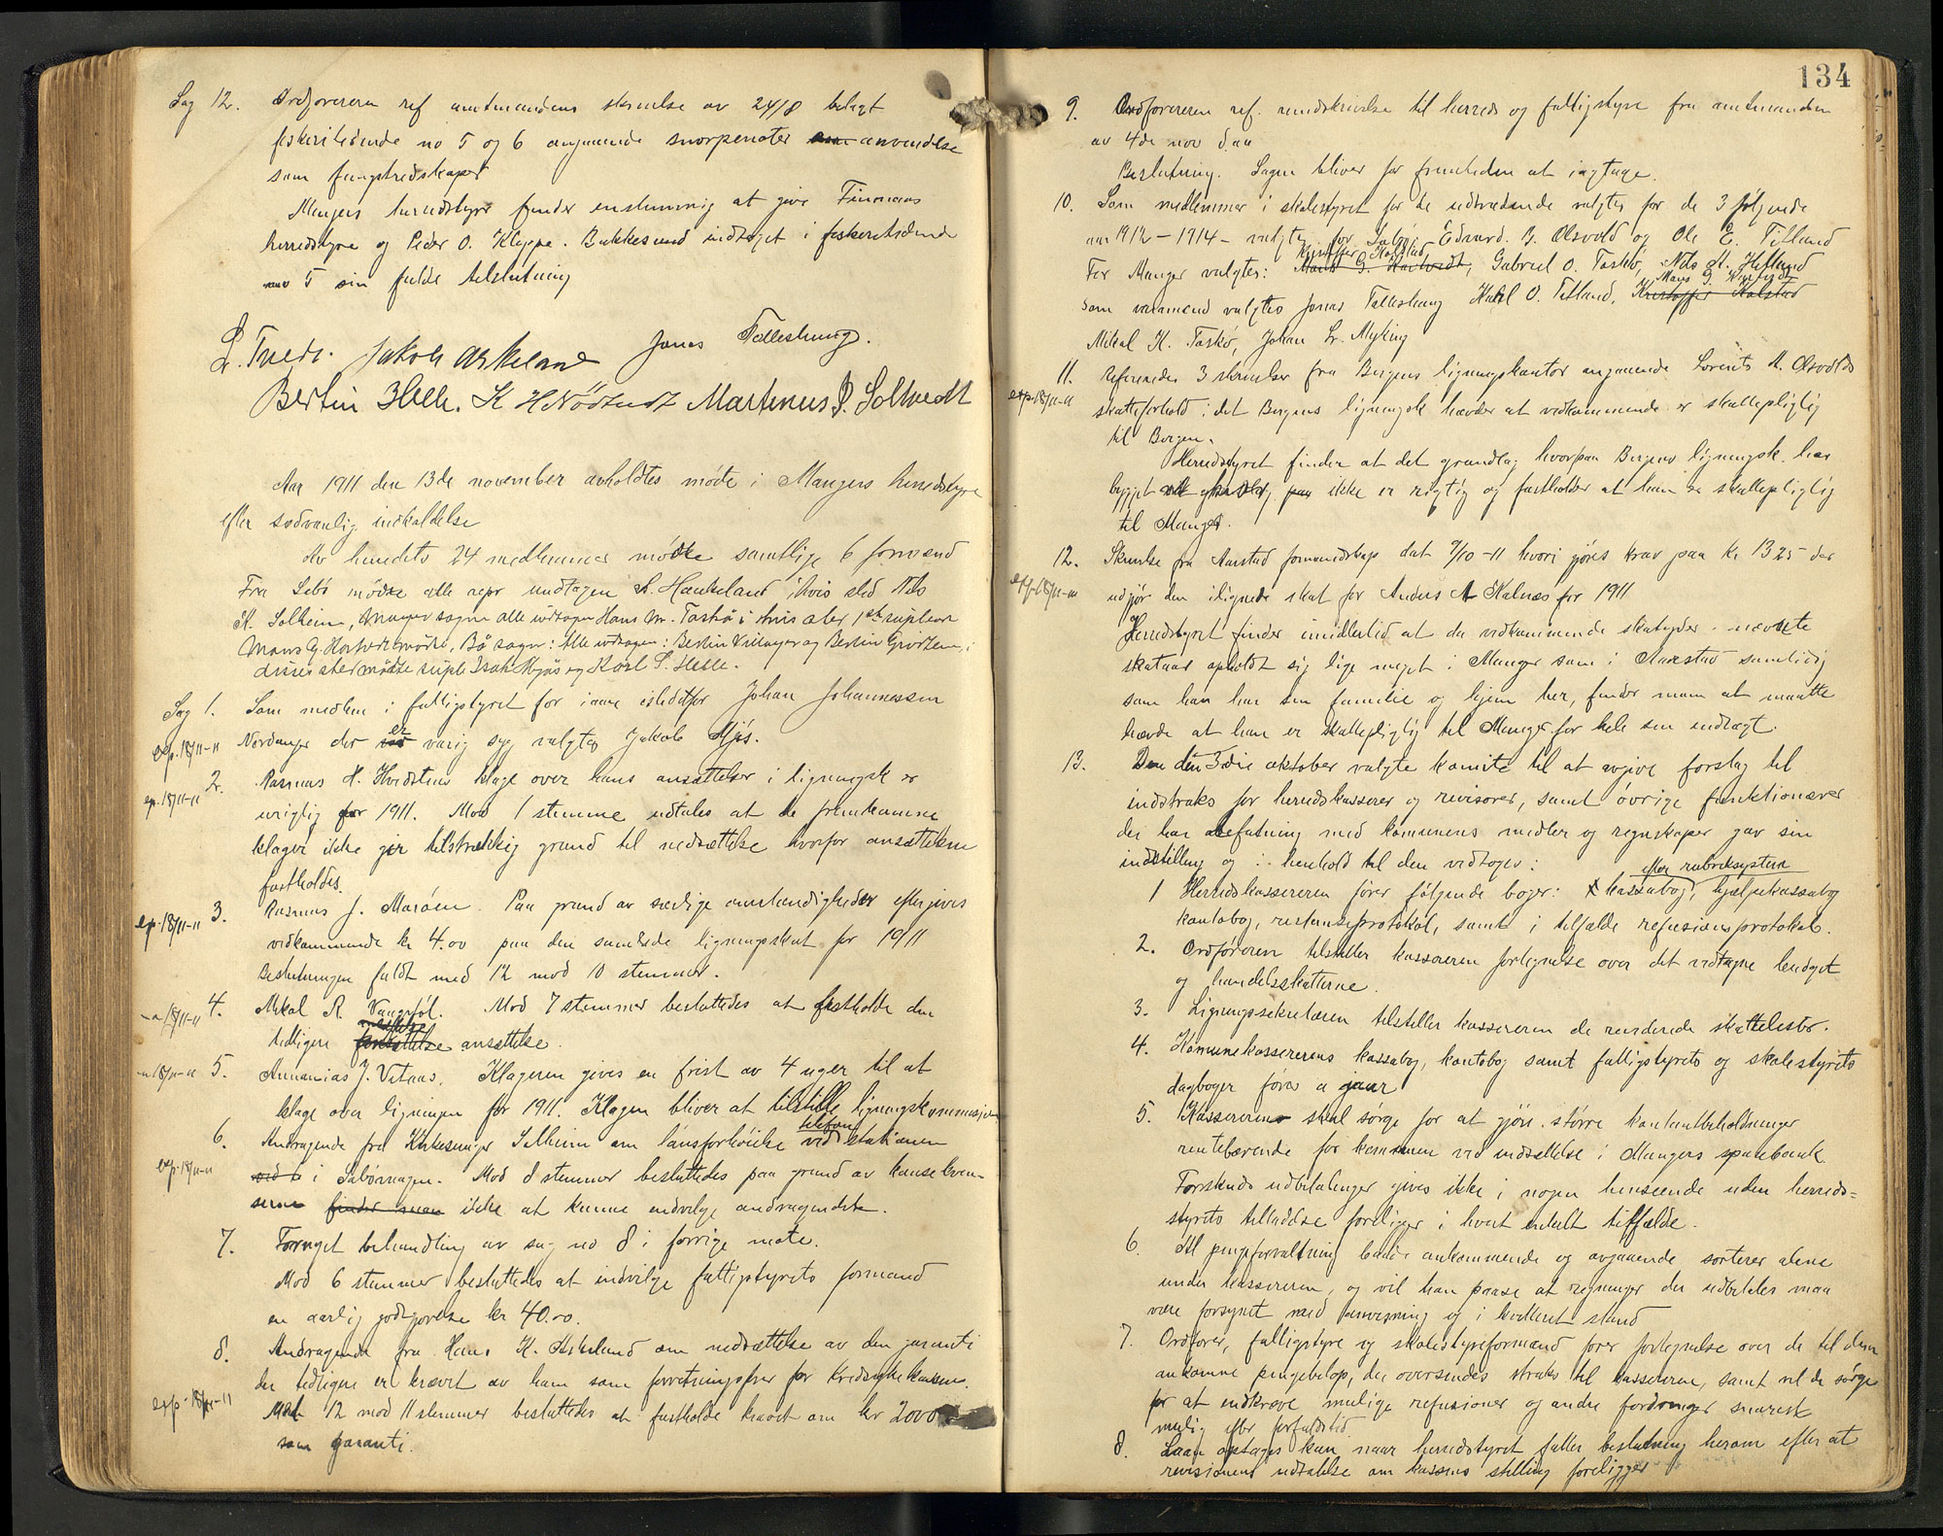 Sag 12. Ordføreren ref amtmandens skrivelse av 24/8 bilagt
fiskeritidende no 5 og 6 angaaende snorpenøter som anvendelse
som fangstredskaper
Mangers herredstyre finder enstemmig at give Finnaas
herredstyre og Peder O. Kleppe. Bukkesund indtaget i fiskeritidende
no 5 sin fulde tilslutning
Jakob Askeland Jonas Tolleshaug.
Bertin Helle. Martinus J. Soltvedt
Aar 1911 den 13de november avholdtes møte i Mangers herredstyre
efter sedvanlig indkaldelse
Av herredets 24 medlemmer mødte samtlige 6 formænd
Fra Sebø mødte alle repr undtagen A. Haukeland i hvis sted Nils
K. Solheim, Manger sogn alle undtagen Hans M. Toskø i hvis sted 1ste suplent
Mons G. Hartvedt mødte, Bø sogn: Alle undtagen: Bertin og Bertin, i
disses sted mødte supl. Isak Mjøs og Karl S. Helle.
Sag 1. Som medlem i fattigstyret for i avdøde Johan Johannessen
exp. 18/11-11 Nordanger der var er varig syg valgtes Jakob Mjøs.
2. Rasmus H. Hvidstens klage over hans ansættelse i ligningsk er
exp. 18/11-11 urigtig for 1911. Mod 1 stemme udtales at de fremkomne
klager ikke gir tilstrækkig grund til nedsættelse hvorfor ansættelsen
fastholdes.
exp. 18/11-11 3. Rasmus J. Marøen. Paa grund av særlige omstændigheder eftergives
vedkommende kr 4.00 paa den samlede ligningskat for 1911
Beslutningen faldt med 12 mod 10 stemmer.
18/11-11 4. Mikal R. Vaagsføl. Mod 7 stemmer besluttedes at fastholde den
tidligere ansættelse.
18/11-11 5. Ananias J. Vetaas. Klageren gives en frist av 4 uger til at
klage over ligningen for 1911. Klagen bliver at tilstille ligningskommissjon
6. Andragende fra Kirkesanger Solheim om lønsforhøielse ved telefonstationen
exp. 18/11-11 ved i Sæbøvaagen. Mod 8 stemmer besluttedes paa grund av konsekven-
serne finder man ikke at kunne indvilge andragendet.
7. Foretaget behandling av sag no 8 i forrige møte.
Mod 6 stemmer besluttedes at indvilge fattigstyrets formand
en aarlig godtgjørelse kr 40.00.
8. Andragende fra Hans K. Askeland om nedsættelse av den garanti
der tidligere er krævet av ham som forretningsfører for Kredsykekassen.
exp. 18/11-11 Med 12 mod 11 stemmer besluttedes at fastholde kravet om kr 2000
som garanti.
134
9. Ordføreren ref. rundskrivelse til herreds og fattigstyre fra amtmanden
av 4de nov d.aa
Beslutning. Sagen bliver for fremtiden at iagttage.
10. Som medlemmer i skolestyret for de uttrædende valgtes for de 3 følgende
aar 1912 – 1914 – valgtes for Sæbø, Edvard. B. Olsvold og Ole E. Titland
Kristoffer Kolstad
For Manger valgtes: Mons G. Hartvedt, Gabriel O. Toskø, Nils A. Hetland
Mons G. Hartvedt
som varamænd valgtes Jonas Tolleshaug Karl O. Titland, Kristoffer Kolstad
Mikal K. Toskø, Johan Lr. Myking
11. Refereredes 3 skrivelser fra Bergens ligningskontor angaaende Lorents M. Olsvolds
exp. 18/11-11 skatteforhold i det Bergens ligningsk. hævder at vedkommende er skattepligtig
til Bergen.
Herredstyret finder at det grundlag hvorpaa Bergens ligningsk. har
bygget ikke er rigtig og fastholder at han er skattepligtig
til Manger.
12. Skrivelse fra Aarstad formandskap dat 7/10 -11 hvori gjøres krav paa kr 13 25 der
exp. 18/11-11 utgjør den ilignede skat for Anders A Kalnæs for 1911
Herredstyret finder imidlertid at da vedkommende skatyder nævnte
skataar opholdt sig like meget i Manger som i Aarstad samtidig
som han har sin familie og hjem her, finder man at maatte
hævde at han er skattepligtig til Manger for hele sin indtægt.
13. Den den 3die oktober valgte komite til at avgive forslag til
indstruks for herredskasserer og revisorer, samt øvrige funktionærer
der har befatning med kommunens midler og regnskaper gav sin
indstilling og i henhold til den vedtoges:
efter rubriksystem
1 Herredskassereren fører følgende bøger: kassabog, hjælpekassabog
kontobog, restanseprotokol, samt i tilfælde refusionsprotokol.
2. Ordføreren tilstiller kassereren fortegnelse over det vedtagne budget
og handelsskatterne.
3. Ligningssekretæren tilstiller kassereren de reviderede skattelister.
4. Komunekassererens kassabog, kontobog samt fattigstyrets og skolestyrets
dagbøger føres a jour
5. Kassereren skal sørge for at gjøre større kontantbeholdninger
rentebærende for kommunen ved indsættelse i Mangers sparebank.
Forskuds udbetalinger gives ikke i nogen henseende uden herreds=
styrets tilladelse foreligger i hvert enkelt tilfælde.
6. Al pengeforvaltning baade ankommende og avgaaende sorterer alene
under kassereren, og vil han paase at regninger der utbetales maa
være forsynet med anvisning og i kvitteret stand
7. Ordfører, fattigstyre og skolestyreformand fører fortegnelse over de til dem
ankomne pengebeløp, der oversendes straks til kassereren, samt vil de sørge
for at indkræve mulige refusioner og andre fordringer snarest
mulig efter forfaldstid.
8. Laan optages kun naar herredstyret fatter beslutning herom efter at
revisionens udtalelse om kassens stilling foreligger